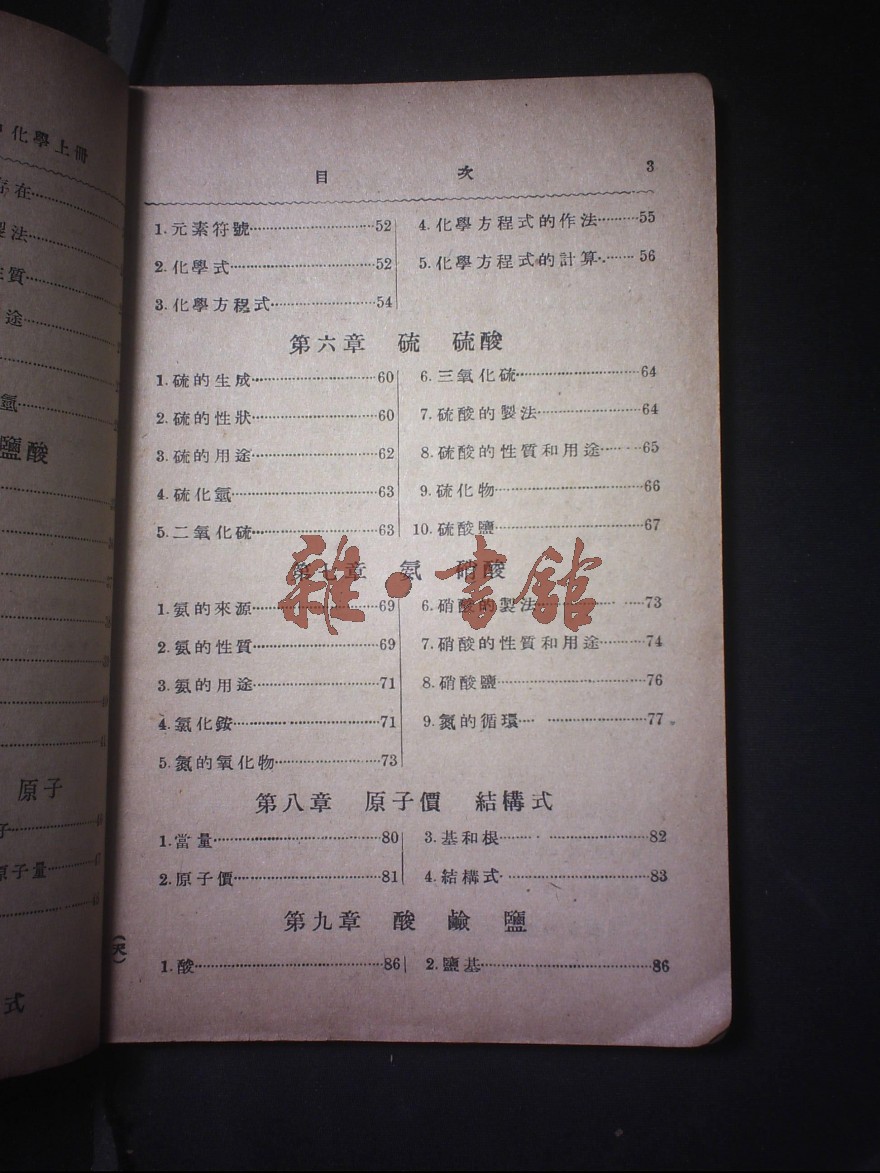 化學上冊
存在
製法
性質
途
氫
鹽酸
原子
子
原子量
式
目 次 3
1.元素符號 52
2.化學式 52
3.化學方程式 54
4.化學方程式的作法 55
5.化學方程式的計算 56
第六章 硫 硫酸
1.硫的生成 60
2.硫的性狀 60
3.硫的用途 62
4.硫化氫 63
5.二氧化硫 63
6.三氧化硫 64
7.硫酸的製法 64
8.硫酸的性質和用途 65
9.硫化物 66
10.硫酸鹽 67
第七章 氨 硝酸
1.氨的來源 69
2.氨的性質 69
3.氨的用途 71
4.氯化銨 71
5.氮的氧化物 73
6.硝酸的製法 73
7.硝酸的性質和用途 74
8.硝酸鹽 76
9.氮的循環 77
第八章 原子價 結構式
1.當量 80
2.原子價 81
3.基和根 82
4.結構式 83
第九章 酸 鹼 鹽
1.酸 86
2.鹽基 86
雜·書館